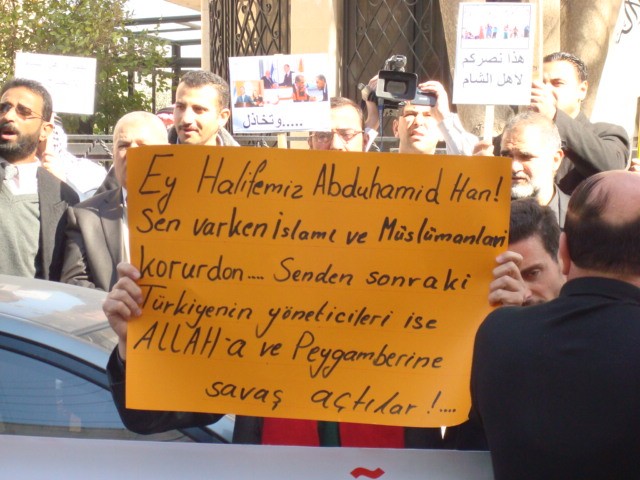 هذا نصركم
لاهل الشام
و تخاذل.....
Ey Halifemiz Abduhamid Han!
Sen varken İslamı ve Müslümanları
korurdon.... Senden sonraki
Türkiyenin yöneticileri ise
ALLAH-a ve Peygamberine
savaş açtılar!....